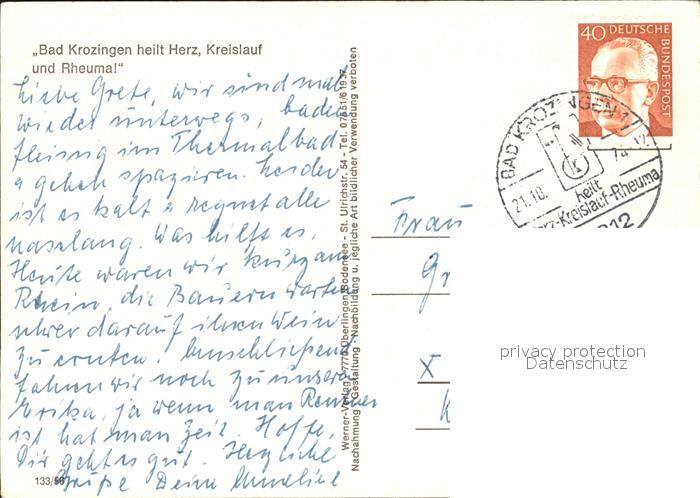 „Bad Krozingen heilt Herz, Kreislauf
und Rheuma!"
Liebe Grete, wir sind mal
wieder unterwegs, baden
fleissig im Thermalbad
u gehen spazieren. Leider
ist es kalt u regnet alle
naselang. Was hilft es.
Heute waren wir kurz am
Rhein, die Bauern warten
schwer darauf ihren Wein
zu ernten. Anschließend
fahren wir noch zu unserer
Erika, ja wenn man Rentner
ist hat man Zeit. Hoffe,
Dir geht es gut. Herzliche
Grüße Deine
133/69
Werner-Verlag - 7770 Überlingen/Bodensee - St. Ulrichstr. 54 - Tel. 07551/61937
Nachahmung d. Gestaltung - Nachbildung u. jegliche Art bildlicher Verwendung verboten
40 DEUTSCHE
BUNDESPOST
BAD KROZINGEN 1
21.10.
74 - 12
heilt
Herz-Kreislauf-Rheuma
7812
Frau
Gr
X
privacy protection
Datenschutz